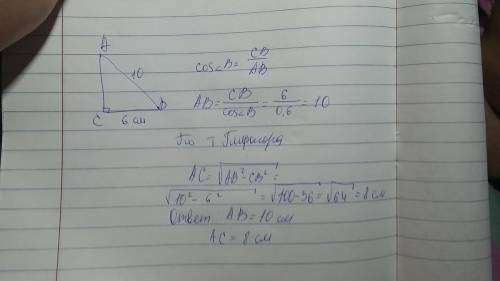 A
10
C
B
6 см
cos∠B = CB/AB
AB = CB/cos∠B = 6/0,6 = 10
По т Пифагора
AC = √AB² - CB² =
√10² - 6² = √100-36 = √64 = 8 см
Ответ AB = 10 см
AC = 8 см